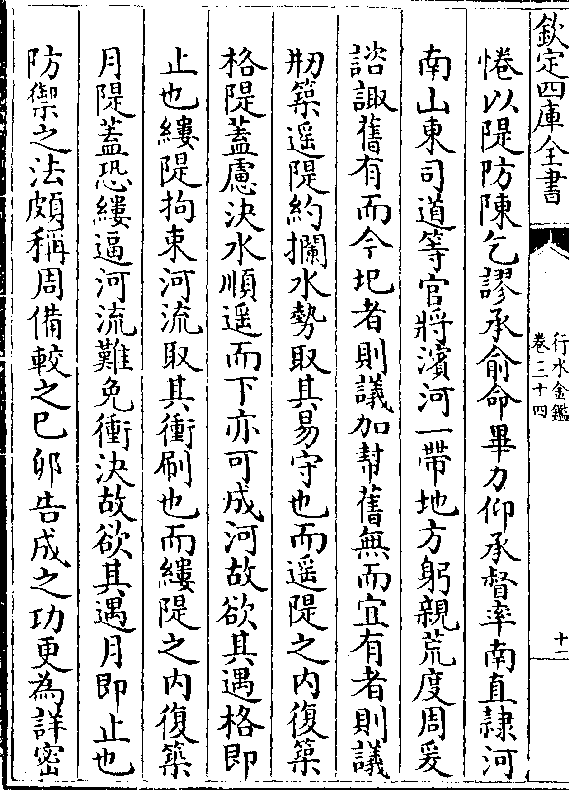 欽定四庫全書
行水金鑑
卷三十四
十一
惓以隄防陳乞謬承俞命畢力仰承督率南直隸河
南山東司道等官將濱河一帶地方躬親荒度周爰
諮諏舊有而今圮者則議加幫舊無而宜有者則議
剏築遥隄約攔水勢取其易守也而遥隄之内復築
格隄蓋慮決水順遥而下亦可成河故欲其遇格即
止也縷隄拘束河流取其衝刷也而縷隄之内復築
月隄蓋恐縷逼河流難免衝決故欲其遇月即止也
防禦之法頗稱周備較之巳夘告成之功更為詳密